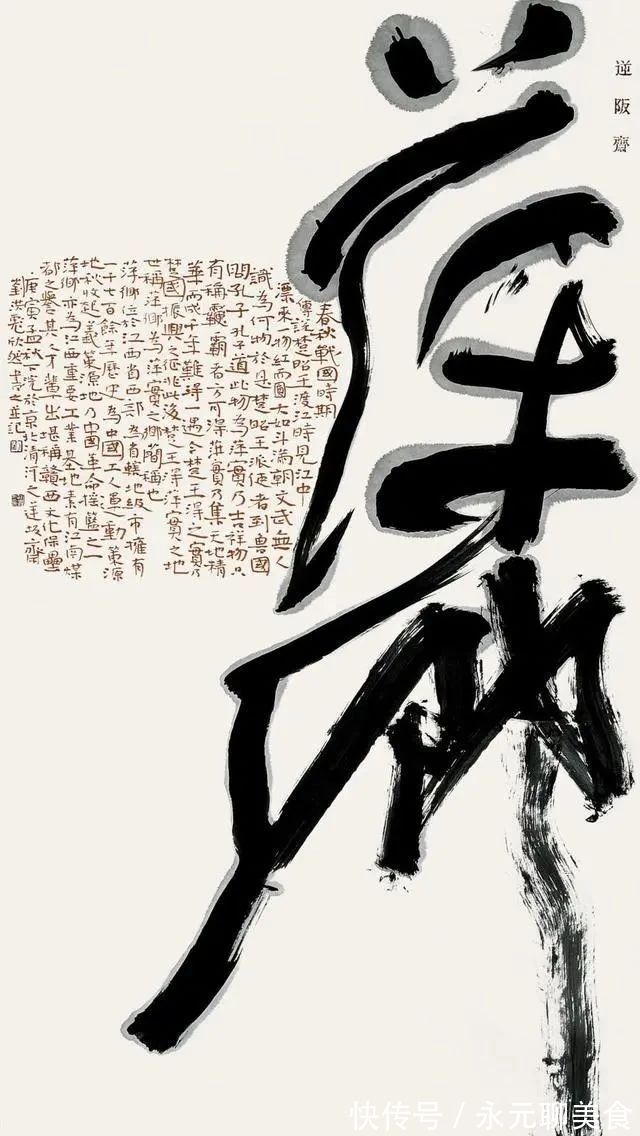 逆阪齋
萍鄉
春秋戰國時期
傳說楚昭王渡江時見江中
漂來一物紅而圓大如斗滿朝文武無人
識為何物於是楚昭王派使者到魯國
問孔子孔子道此物為萍實乃吉祥物只
有稱霸者方可得萍實乃集天地精
華而成千年難得一遇今楚王得之實乃
楚國振興之征兆此後楚王得萍實之地
世稱萍鄉為萍實之鄉簡稱也
萍鄉位於江西省西部為省轄地級市擁有
一千七百餘年歷史為中國工人運動策源
地秋收起義策源地乃中國革命搖籃之一
萍鄉亦為江西重要工業基地素有江南煤
都之譽其人才輩出堪稱贛西文化保壘
庚寅孟秋下浣於京北清河之逆坂齋
劉洪彪欣然書之並記
快传号 / 永元聊美食